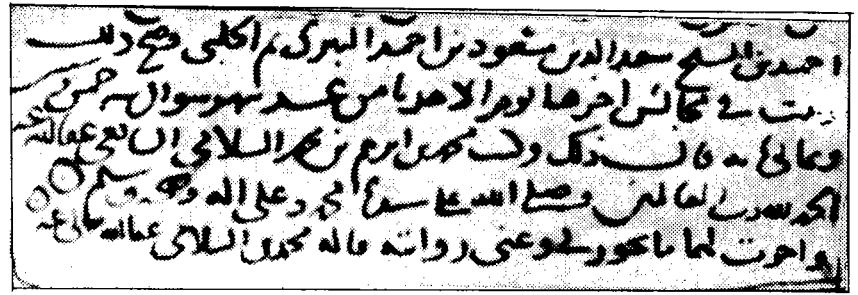 احمد بن الشيخ سعد الدين مسعود بن احمد ثم الحلبي وصح ذلك
وثبت في مجالس اخرها يوم الاحد ثامن عشر شهر شوال سنة خمس
وثماني مائة قال ذلك وكتب محمد بن ابرهيم بن محمد السلامي الشافعي عفا الله عنه
الحمد لله رب العالمين وصلى الله على سيدنا محمد وعلى اله وصحبه وسلم
واجزت لهما ما يجوز لي وعني روايته قاله محمد بن السلامي عفا الله تعالى عنه